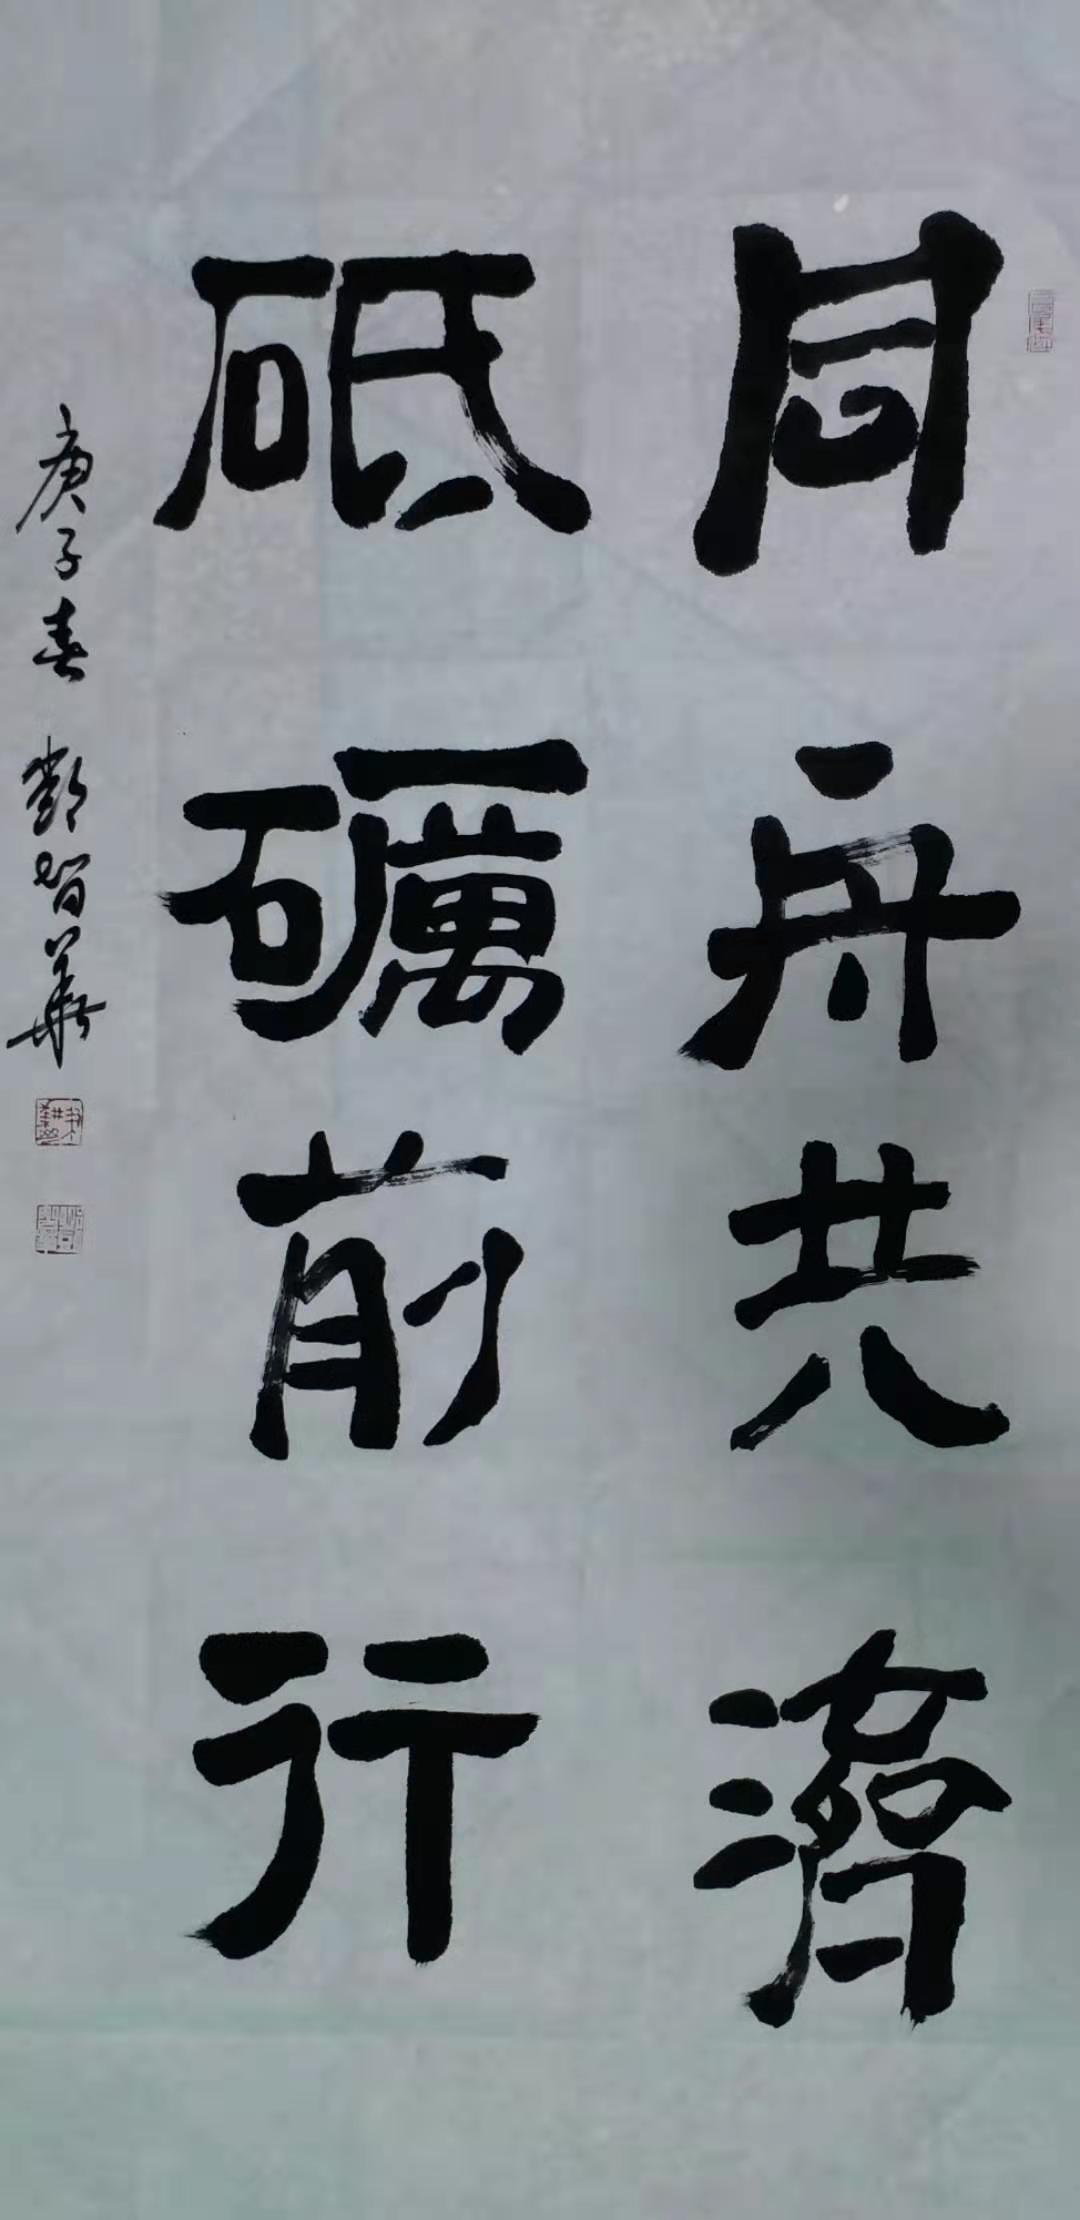 同舟共濟
砥礪前行
庚子春 鄧智華